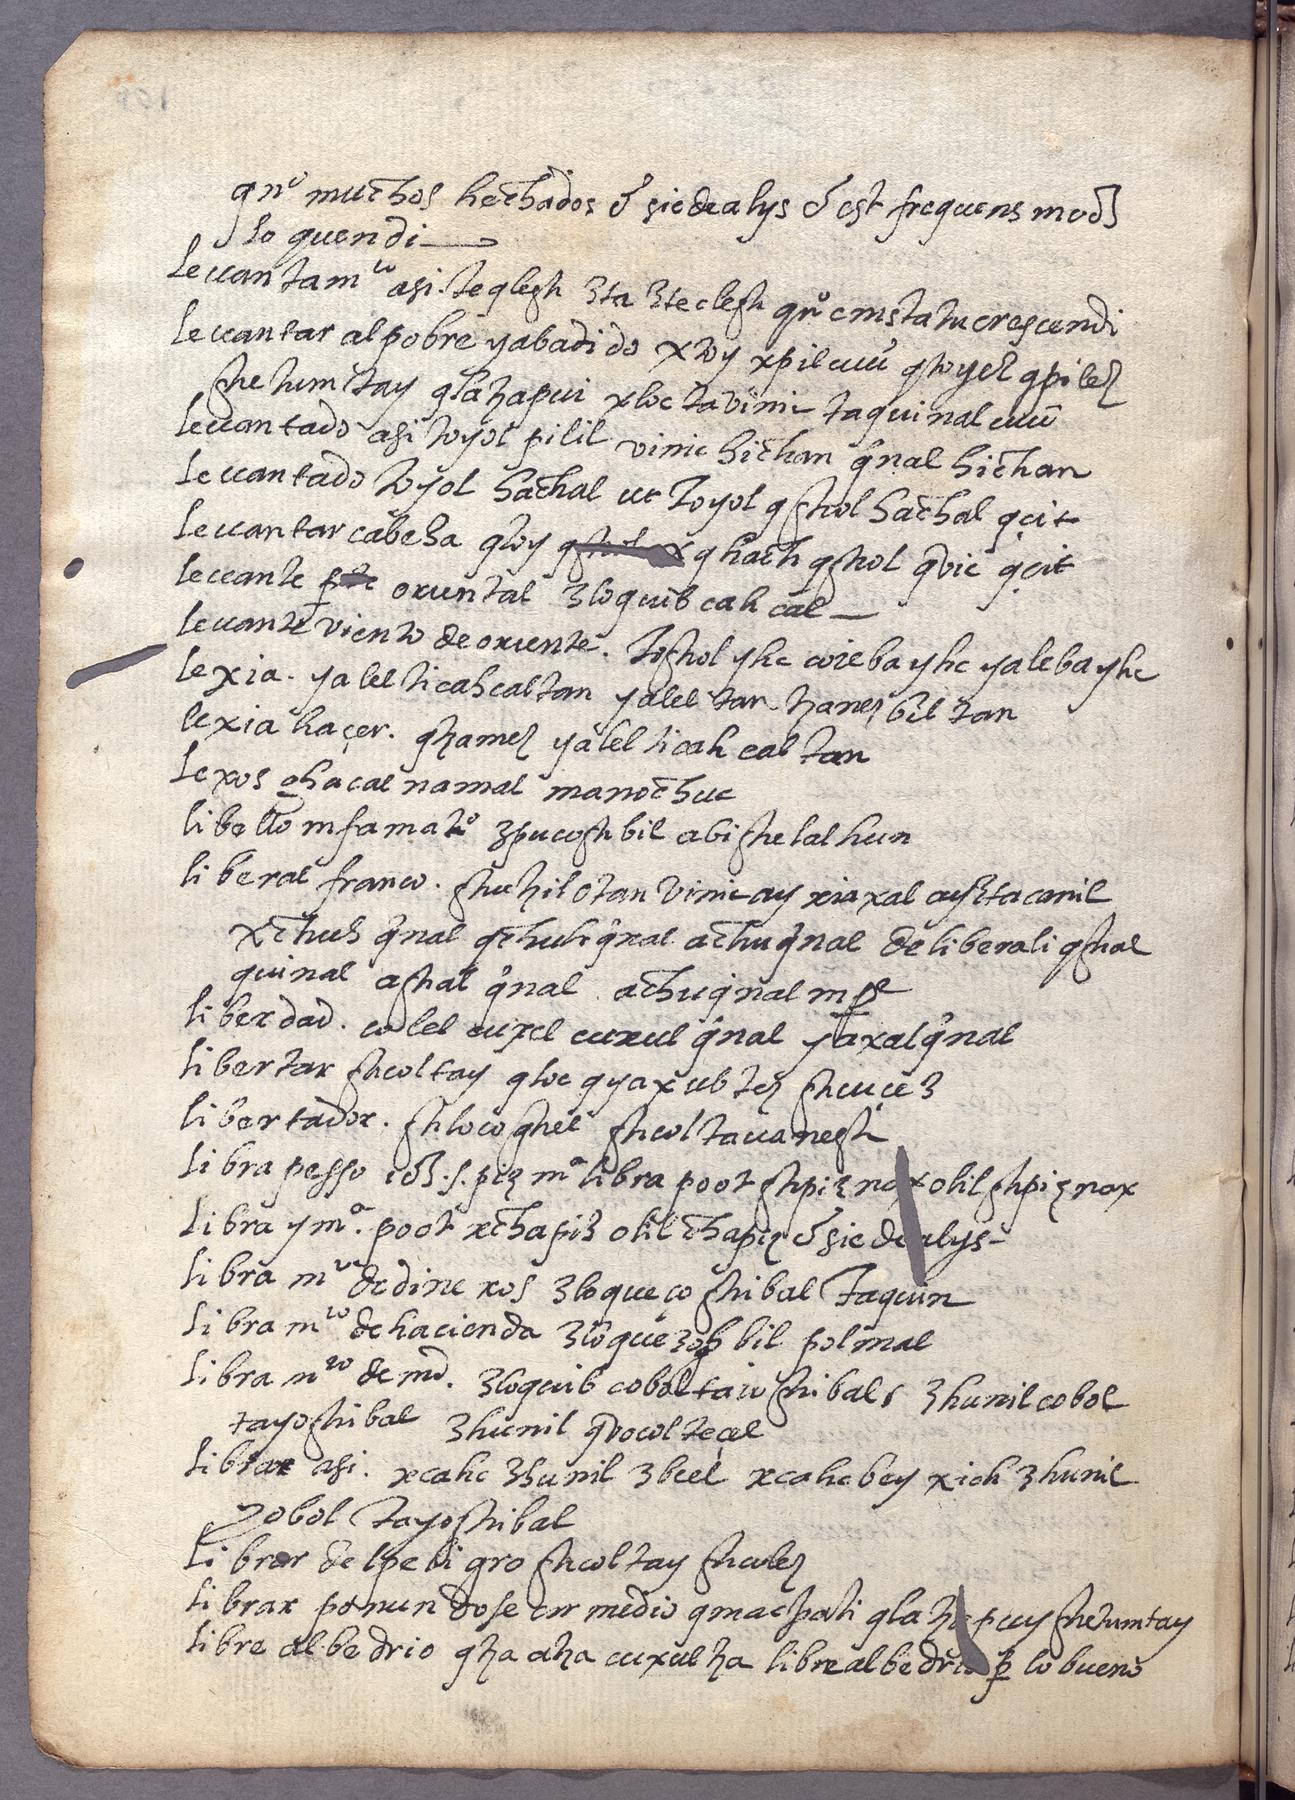 qnº muchos hechados & sic de alys & est frequens mods
loquendi
Levantamto asi. teqlegh 3ta 3teclegh qnº en statu crescendi
Levantar al pobre y abatido xtoy xpil vuº qtoyez qpilez
ghetumtay qlahapui xloc ta vinic taquinal vuº
Levantado asi toyol pilil vinic hichan qnal hichan
Levantado toyol hachal ut toyol qghol hachal qcit
Levantar cabeha qtoy q hach qghol qvic qcit
Levante oriental 3loquib cah cal
Levante viento de oriente. toghol yhc coieba yhc yaleba yhc
lexia. yalel ticahcaltan yalel tan haneh bil tan
lexia haçer. qhamez yalel ticah cal tan
Lexos ghacal namal manochuc
libello infamatº 3pucoghbil abighelal hun
liberal franco. ghuhil otan vinic ay xiaxal ay3tacanil
xchuh qnal qchuh qnal achuqnal de liberali qghal
quinal aghal qnal achuqnal
liberdad. colel cuxel cuxul qnal yaxalqnal
libertar ghcoltay qloc qyaxubtez ghcuce3
libertador. ghlocoghel ghcoltavanegh
Libra pesso piz mª libra poot ghpiz nax olil ghpiz nax
Libra y mª. poot xchapiz olil chapiz & sic de alys
Libramto de dineros 3loqueçoghibal taquin
Libramto de hacienda 3loque3ogh bil polmal
Libramto de md. 3loquib cobol taioghibal 3hunil cobol
tayoghibal 3hunil qvocolteçel
Librar asi. xcahc 3hunil 3beel xcahc bey xich 3hunil
zobol tayoghibal
Librar del peligro ghcoltay ghcolez
Librar poniendose en medio qmachati qlahapuy ghetumtay
libre albedrio qha aha cuxulha libre albedrio p lo bueno